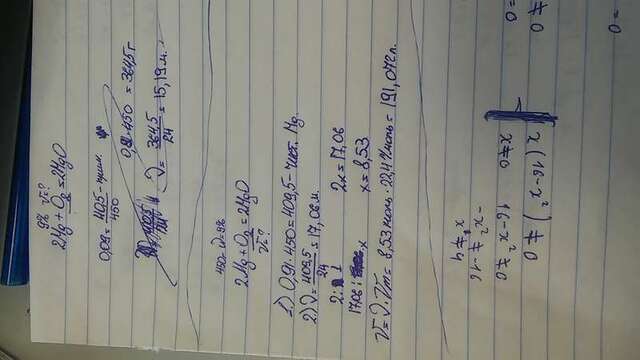 9% V-?
2Mg + O₂ = 2MgO
0,09 = 40,5/450 - прим.
0,81·450 = 364,5 г
ν = 364,5/24 = 15,19 м.
450г ω=9%
2Mg + O₂ = 2MgO
V-?
1.) 0,91·450 = 409,5 - чист. Mg.
2.) ν = 409,5/24 = 17,06 м.
2 : 1 2x = 17,06
17,06 : x x = 8,53
V = ν·Vm = 8,53 моль · 22,4 л/моль = 191,072 л.
x(16-x²) ≠ 0
x≠0 16-x² ≠ 0
-x² ≠ -16
x ≠ 4
0 =
0 ≠
0 =